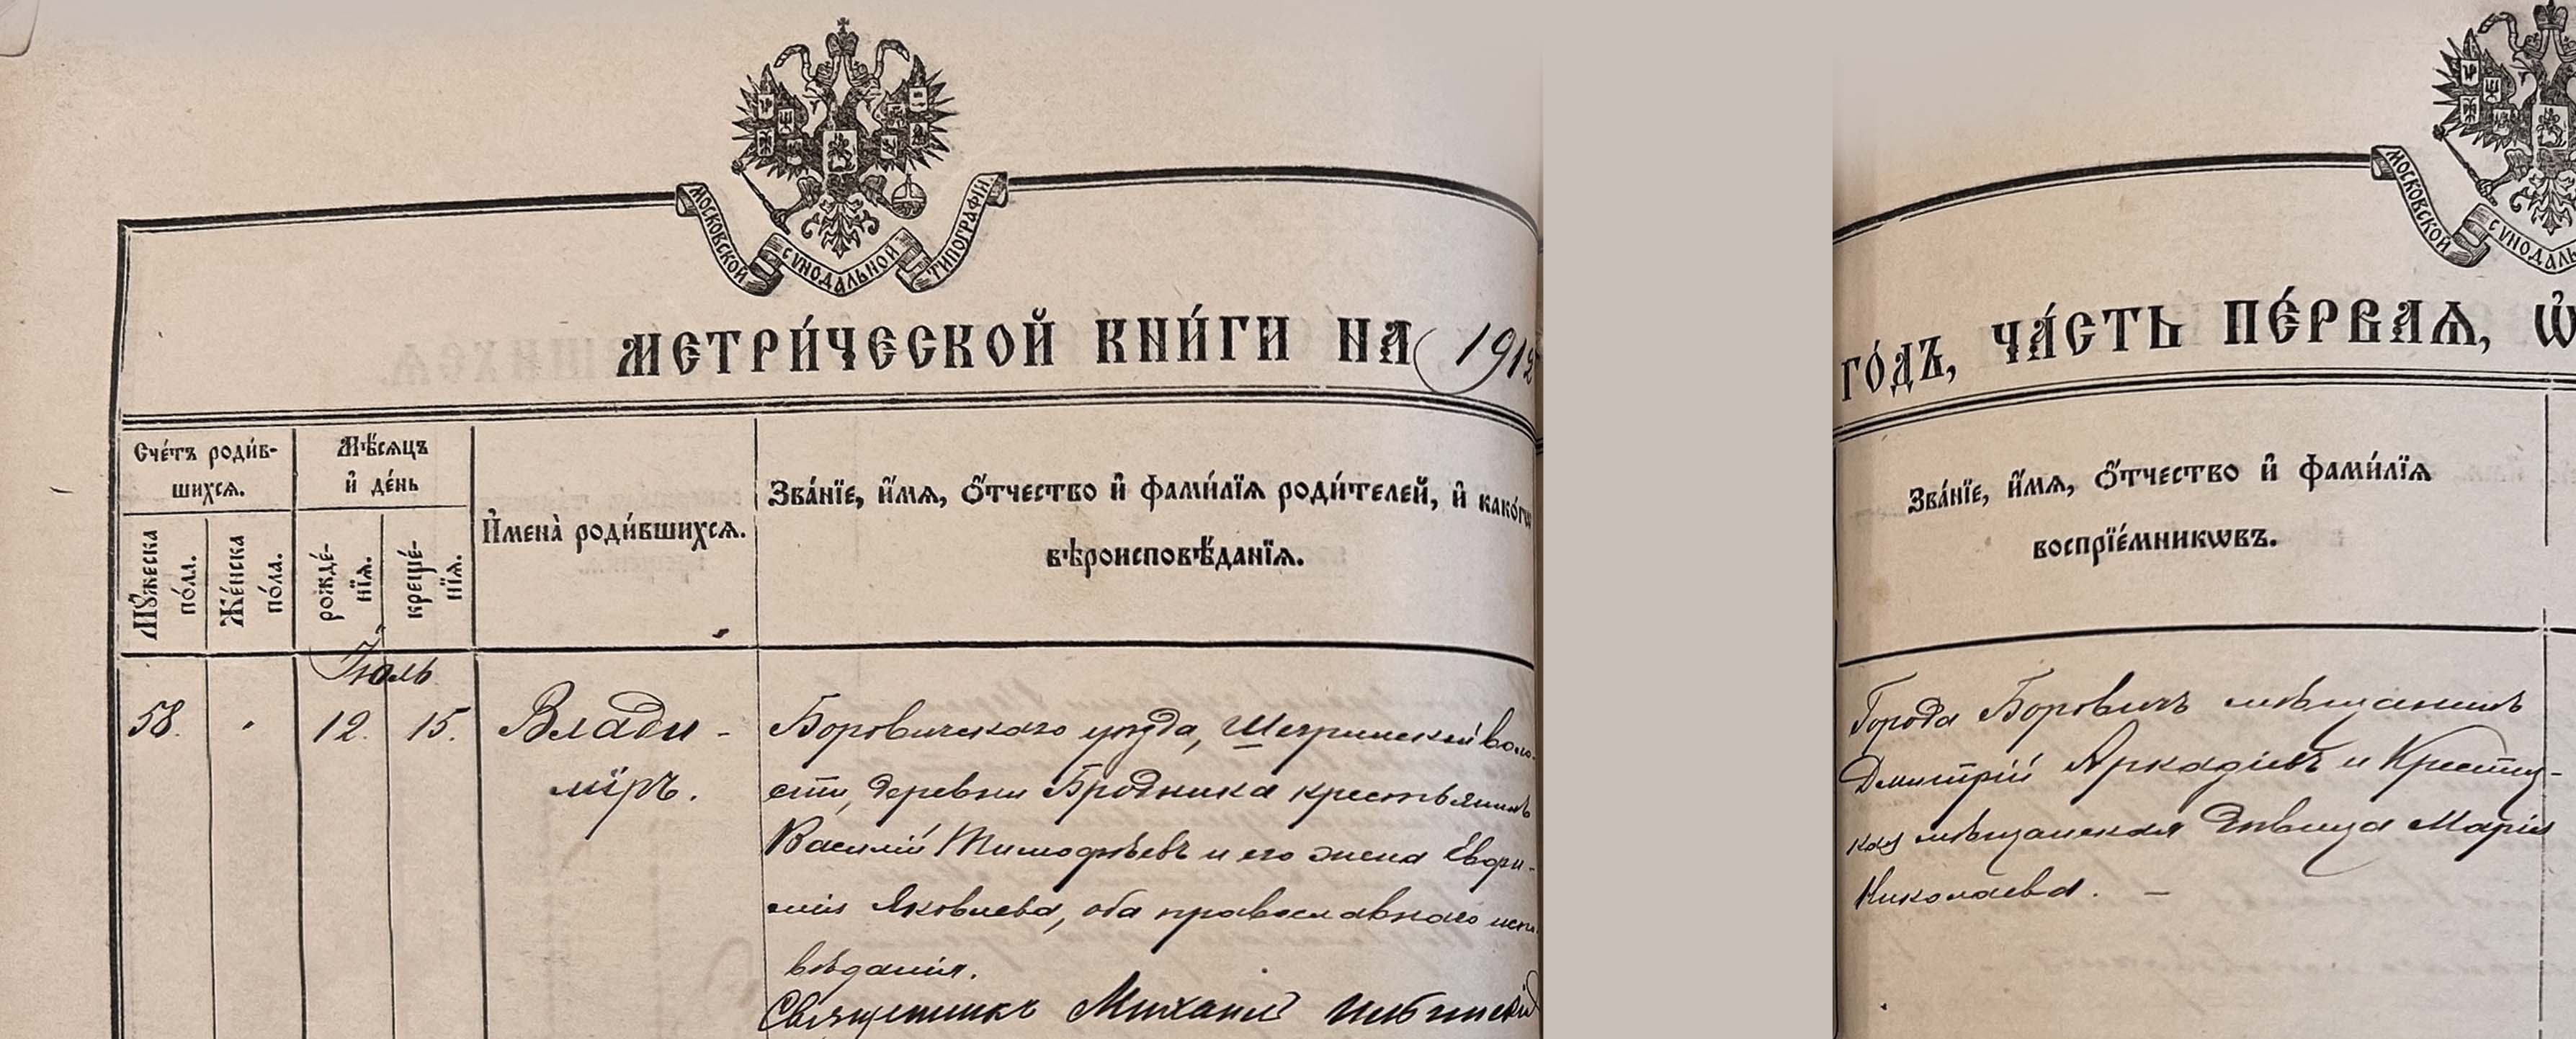 МОСКОВСКОЙ СѴНОДАЛЬНОЙ ТИПОГРАФІИ.
МЕТРИ́ЧЕСКОЙ КНИ́ГИ НА 1912
Сче́тъ роди́в-
шихсѧ.
Мѣ́сѧцъ
и҆ де́нь
Мꙋ́жеска
по́ла.
Же́нска
по́ла.
рожде́-
нїѧ.
креще́-
нїѧ.
И҆мена̀ роди́вшихсѧ.
Зва́нїе, и҆́мѧ, ѻ҆́тчество и҆ фами́лїѧ роди́телей, и҆ како́гѡ
вѣроисповѣ́данїѧ.
Іюль
58. 12. 15.
Влади-
міръ.
Боровичскаго уѣзда, Шегринской воло-
сти, деревни Бродника крестьянинъ
Василій Тимофѣевъ и его жена Евфи-
мія Яковлева, оба православнаго испо-
вѣданія.
Священникъ Михаилъ
МОСКОВСКОЙ СѴНОДАЛЬ
ГО́ДЪ, ЧА́СТЬ ПЕ́РВАѦ, Ѡ҆
Зва́нїе, и҆́мѧ, ѻ҆́тчество и҆ фами́лїѧ
воспрїе́мникѡвъ.
Города Боровичъ мѣщанинъ
Дмитрій Аркадіевъ и Крестец-
кая мѣщанская дѣвица Марія
Николаева. —